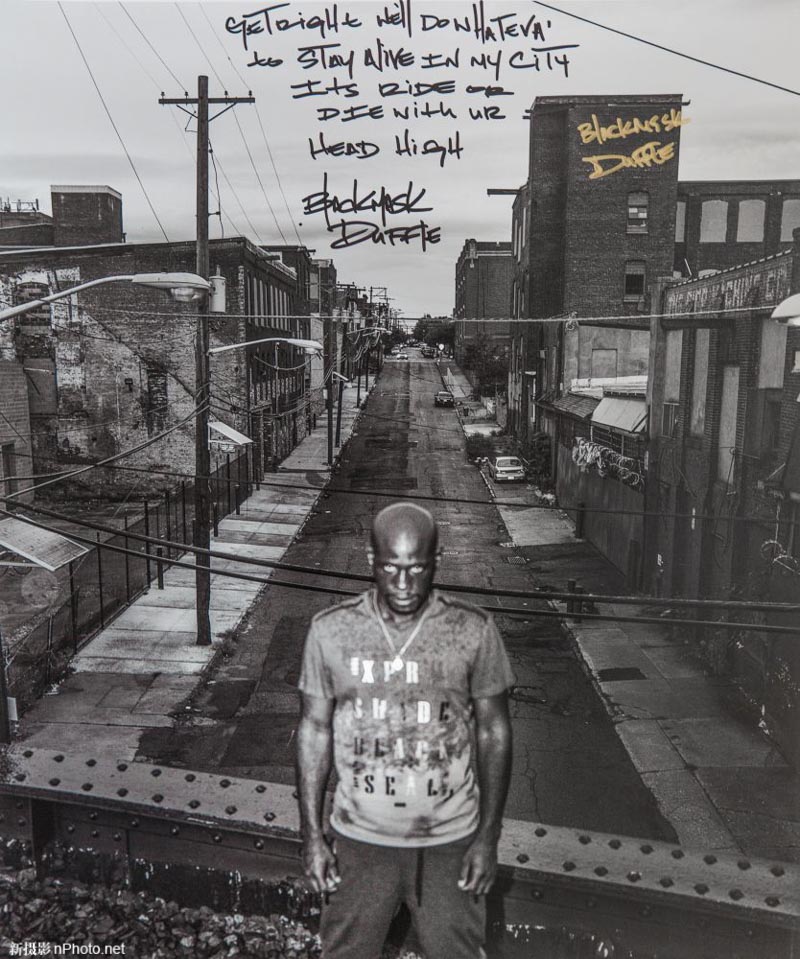 GET RIGHT WE'LL DO WHATEVA'
to STAY ALIVE IN MY CITY
ITS RIDE OR
DIE WITH UR
HEAD HIGH
BLACKMASK
DUFFIE
BLACKMASK
DUFFIE
EXPR
BLACK
SEAL
新摄影 nPhoto.net